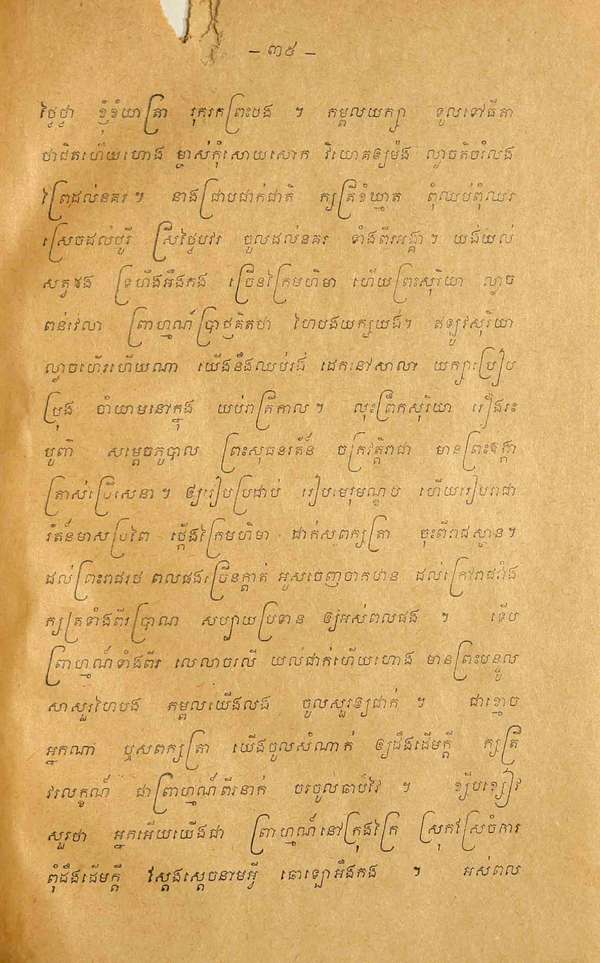 – ៣៥ –
ថ្ងៃថ្ងា ខ្ញុំខំយាត្រា រុករកព្រះបង ។ កម្ពលយក្សា ទូលទៅធីតា
ថាពិតហើយហោង ម្ចាស់កុំសោយសោក វិយោគឲ្យម៉ង ល្ងាចតិចរំលែង
ព្រៃដល់នគរ ។ នាងជ្រាបជាក់ជាតិ ក្សត្រីខំឃ្មាត ពុំឈប់ពុំឈរ
ស្រេចដល់បូរី ស្រីថ្លៃបវរ ចូលដល់នគរ ទាំងពីរអង្គា ។ យងយល់
សត្វផង ទ្រហឹងអឹងកង ច្រើនក្រៃមហិមា ហើយព្រះសុរិយា ល្ងាច
ពន់វេលា ព្រាហ្មណ៍ប្រាជ្ញគិតថា ហៃបងយក្សយង។ ឥឡូវសុរិយា
ល្ងាចហើរហើយណា យើងនឹងឈប់រង ដេកនៅសាលា យក្សាប្រៀប
ប្រុង ចាំយាមនៅក្នុង យប់រាត្រីកាល ។ លុះព្រឹកសុរិយា រឿងរះ
បូព៌ា សម្ដេចភូបាល ព្រះសុធនរត័ន៍ ចក្រវត្តិរាជា មានព្រះឪង្ការ
ត្រាស់ប្រើសេនា ។ ឲ្យរៀបប្រដាប់ រៀបមេរុមណ្ឌប ហើយរៀបរាជា
រ័តន៍មាសប្រពៃ ផ្គើងក្រៃមហិមា ដាក់សពក្សត្រា ចុះពីរាជស្ថាន។
ដល់ព្រះរាជរថ ពលផងច្រើនក្ដាត់ អូសចេញចាកឋាន ដល់ក្រៅរាជវាំង
ក្សត្រទាំងពីរប្រាណ សប្បាយប្រទាន ឲ្យអស់ពលផង ។ ទើប
ព្រាហ្មណ៍ទាំងពីរ លេលាចរលី យល់ជាក់ហើយហោង មានព្រះបន្ទូល
សាសួរហៃបង កម្ពលយើងលង ចូលសួរឲ្យជាក់ ។ ជាខ្មោច
អ្នកណា ឬសពក្សត្រា យើងចូលសំណាក់ ឲ្យដឹងដើមក្ដី ក្សត្រី
វរលក្ខណ៍ ជាព្រាហ្មណ៍ពីរនាក់ ចរចូលឆាប់វៃវ ។ ខ្សឹបខ្សៀវ
សួរថា អ្នកអើយយើងជា ព្រាហ្មណ៍នៅក្រុងក្រៃ ស្រុកវស្រចំការ
ពុំដឹងដើមក្ដី វស្ដងស្ដេចនាមអ្វី ឆោឡោអឹងកង ។ អស់ពល